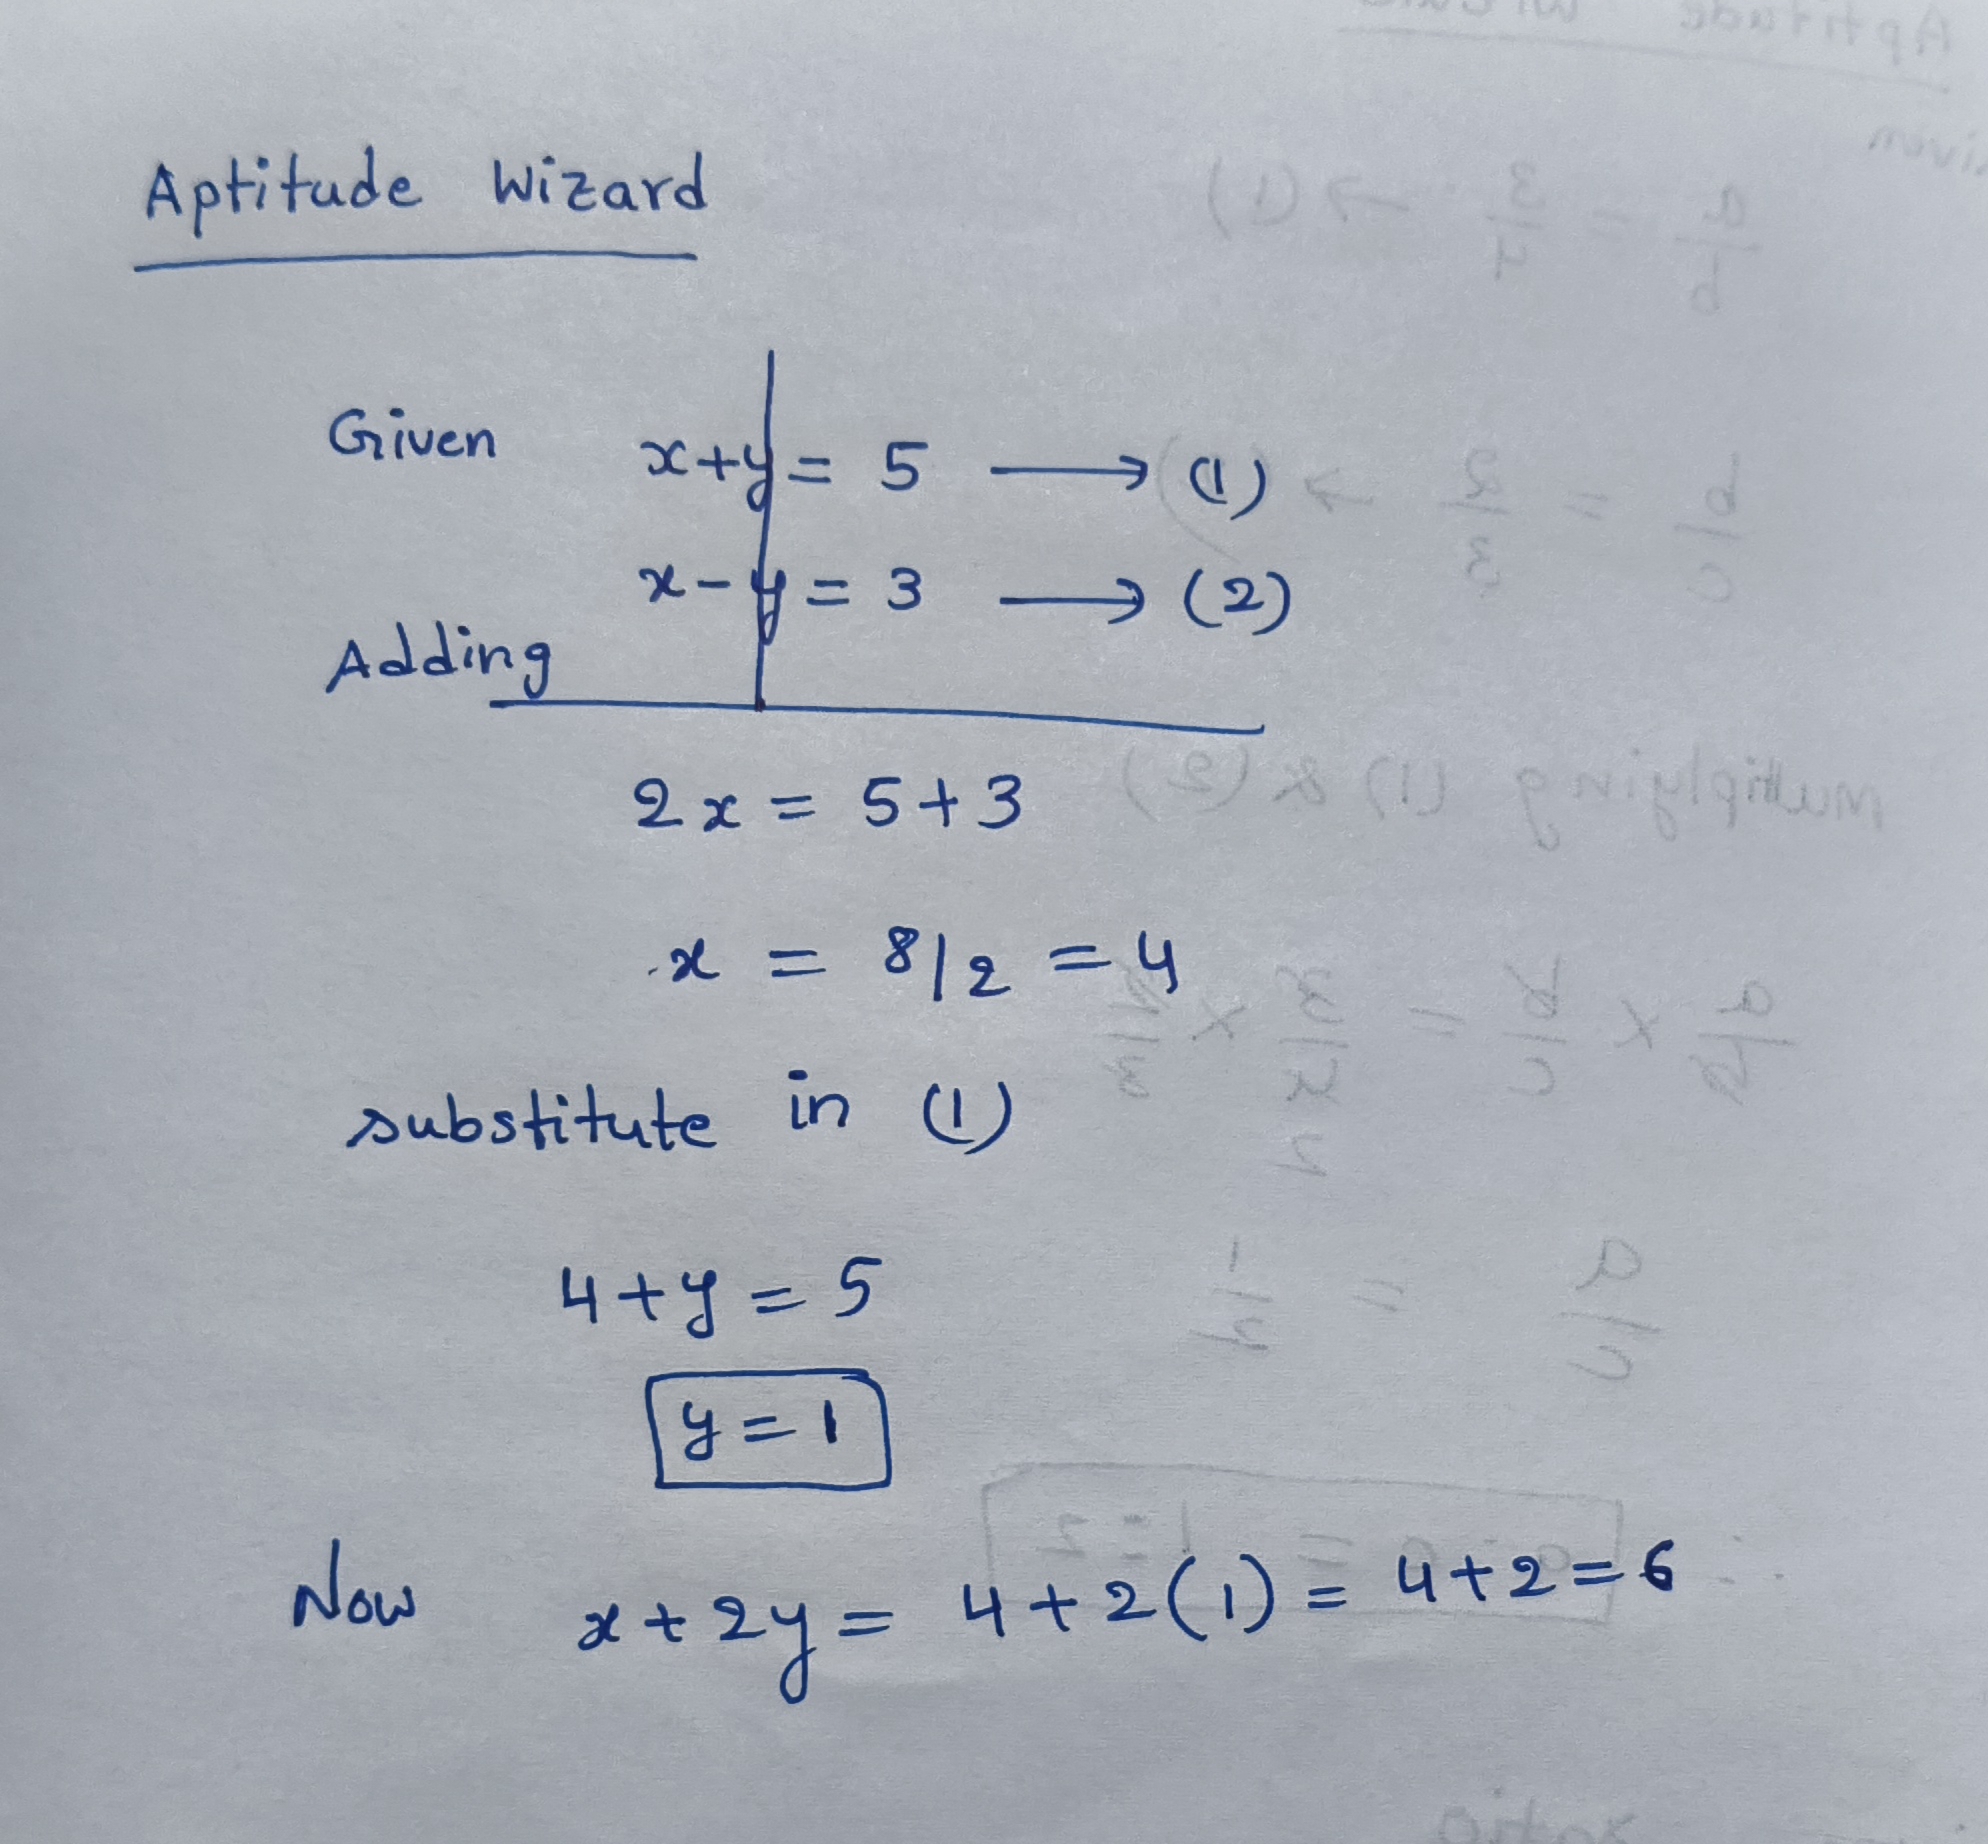 Aptitude Wizard
Given x+y = 5 ⟶ (1)
x-y = 3 ⟶ (2)
Adding
2x = 5+3
x = 8/2 = 4
substitute in (1)
4+y = 5
y = 1
Now x+2y = 4+2(1) = 4+2 = 6